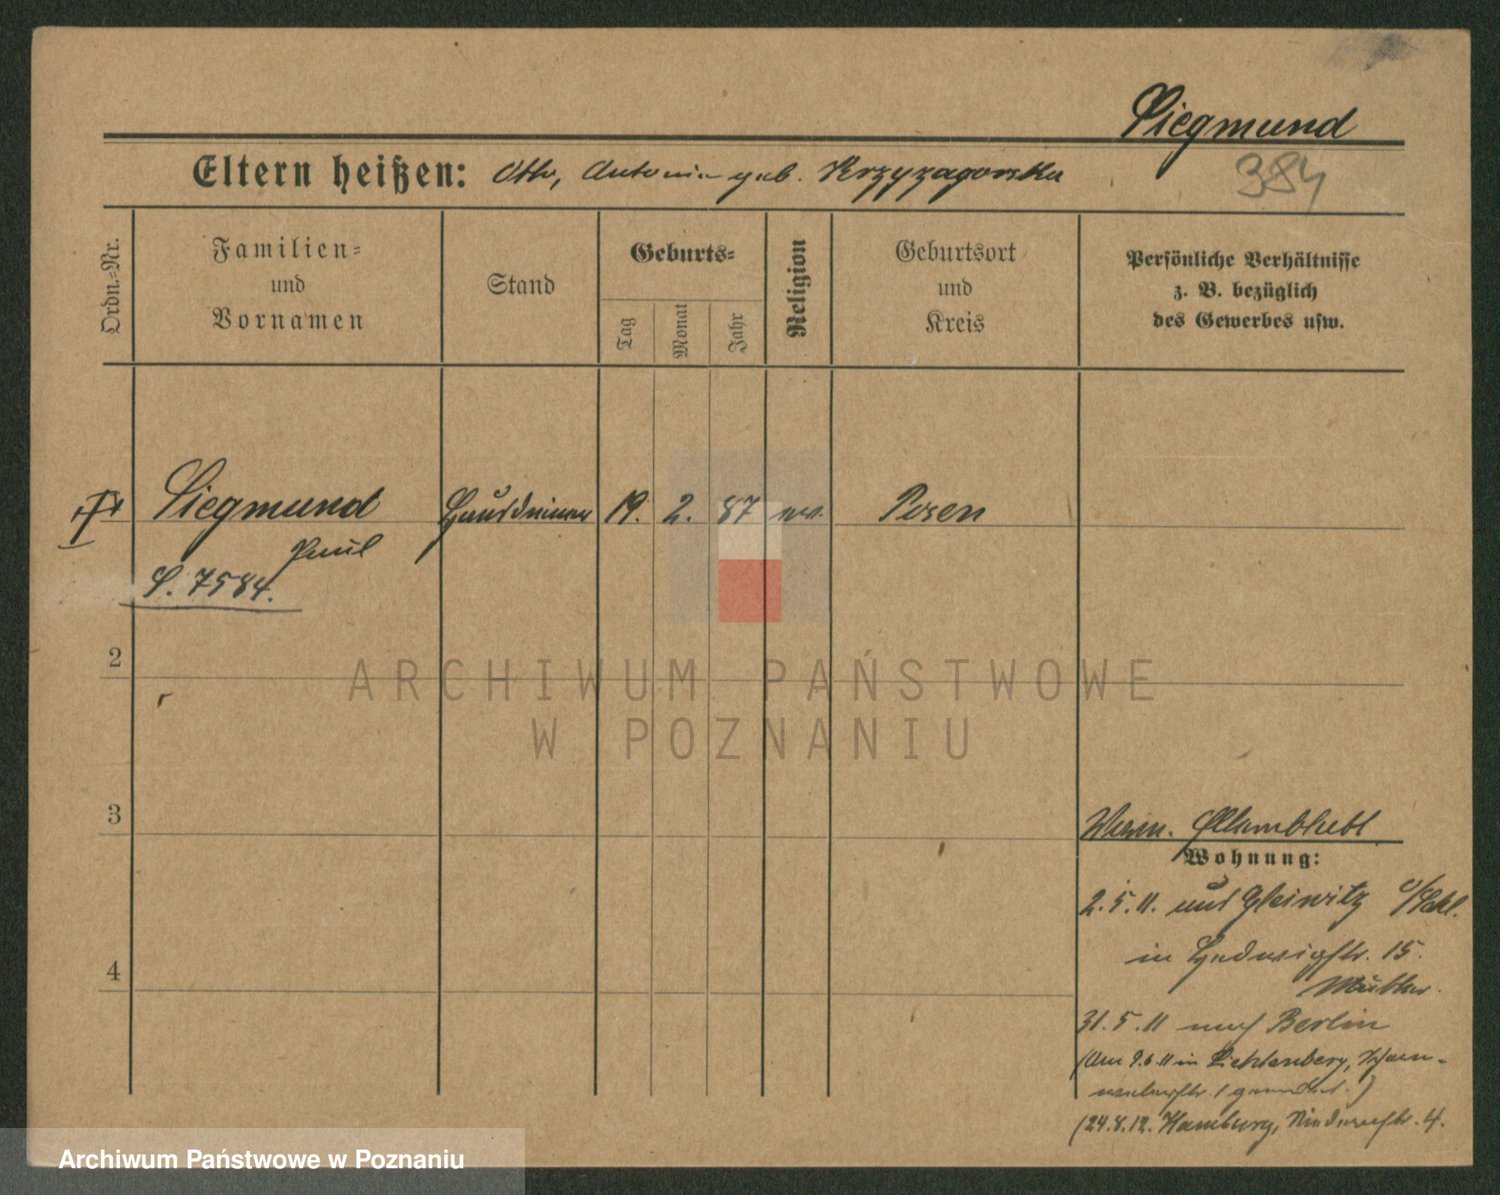 Siegmund
384
Eltern heißen: Otto, Antonie geb. Krzyzagorska
Ordn.-Nr.
Familien-
und
Vornamen
Stand
Geburts-
Tag
Monat
Jahr
Religion
Geburtsort
und
Kreis
Persönliche Verhältnisse
z. B. bezüglich
des Gewerbes usw.
Siegmund
Hausdiener
19.
2.
87
ev.
Posen
Paul
S. 7584.
2
3
4
Wohnung:
2.5.11. aus Gleiwitz O/Schl.
in Hedwigstr. 15.
Mutter.
31.5.11 nach Berlin
(Am 9.6.11 in Lichtenberg,
gemeldet.)
(24.8.12. Hamburg, 4.
ARCHIWUM PAŃSTWOWE
W POZNANIU
Archiwum Państwowe w Poznaniu